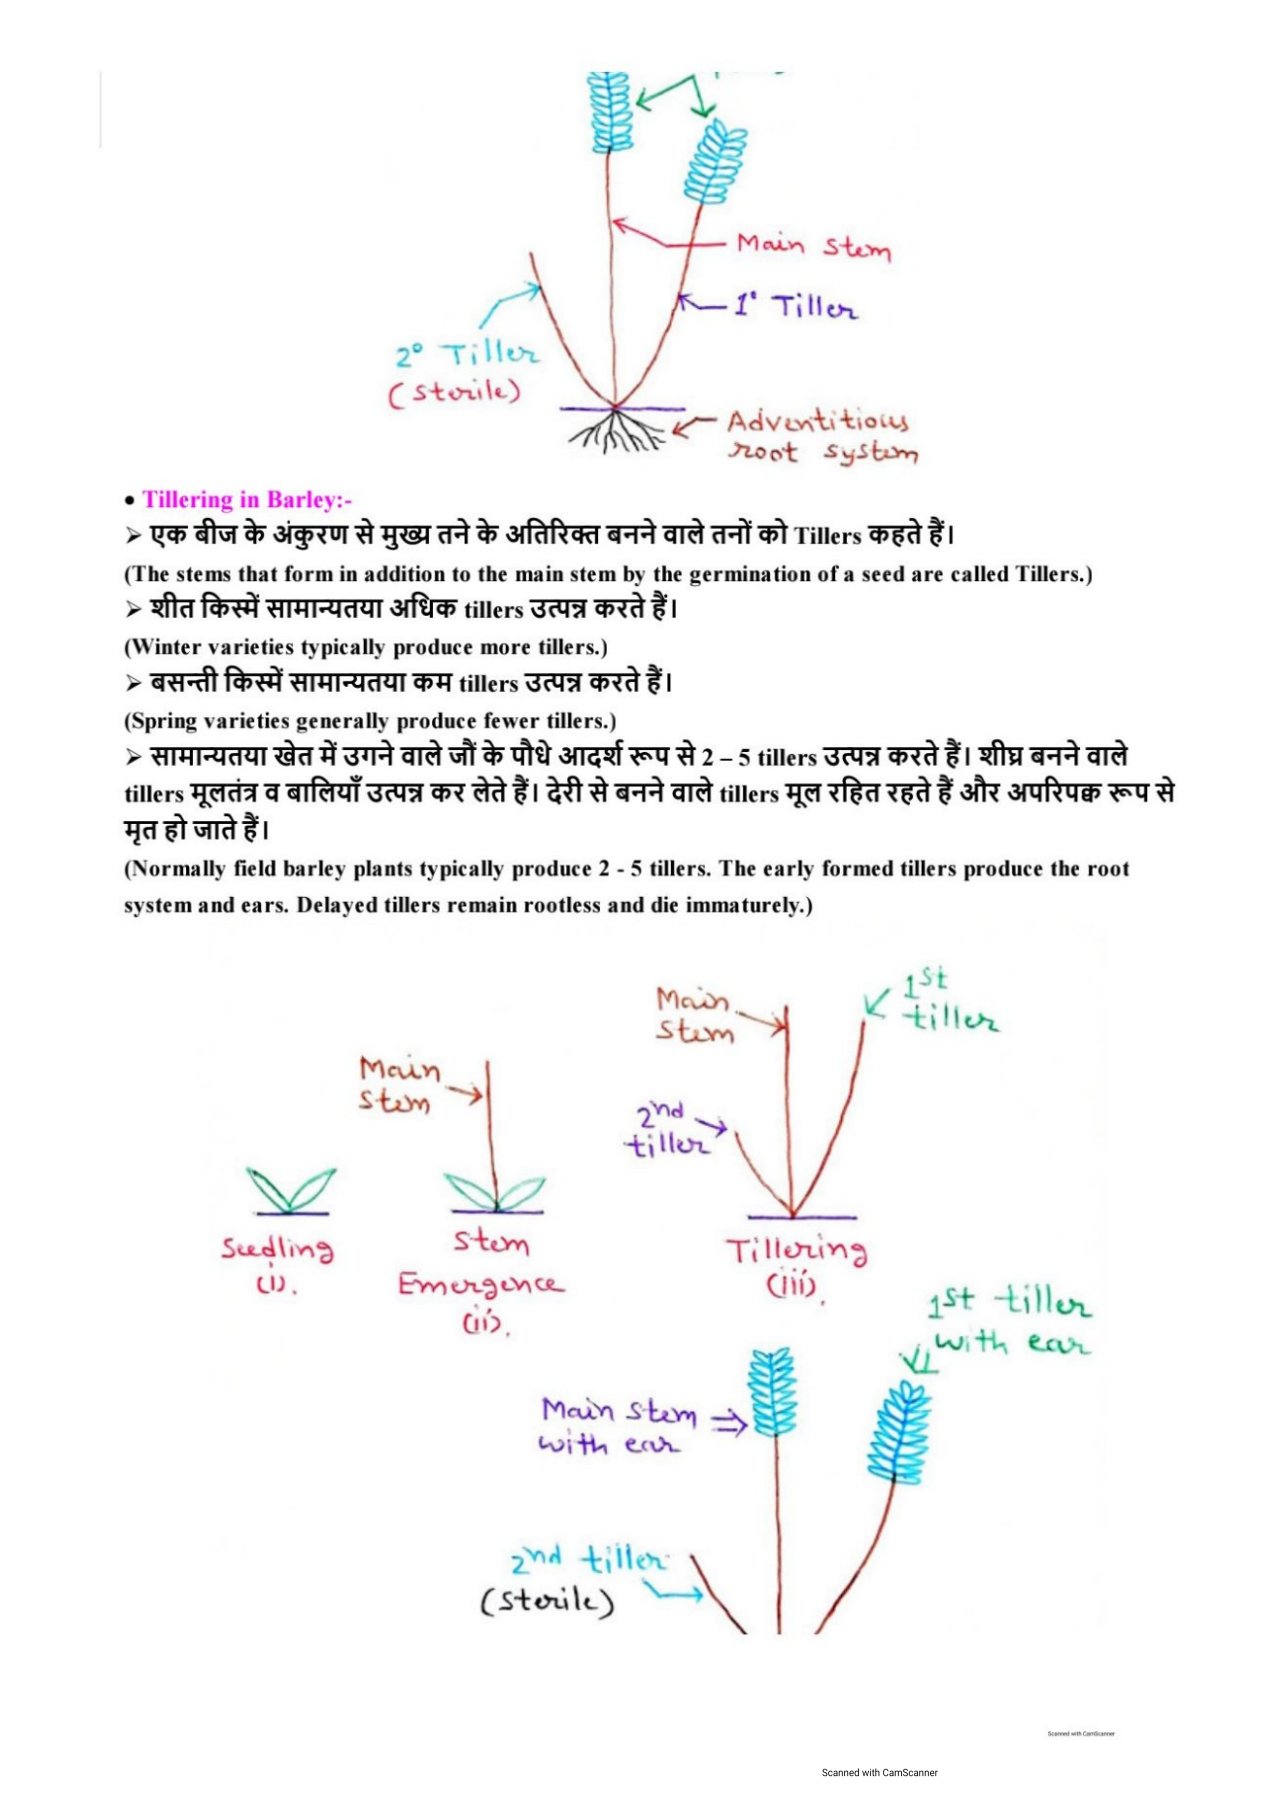 Main stem
1° Tiller
2° Tiller
(Sterile)
Adventitious
root system
• Tillering in Barley:-
➢ एक बीज के अंकुरण से मुख्य तने के अतिरिक्त बनने वाले तनों को Tillers कहते हैं।
(The stems that form in addition to the main stem by the germination of a seed are called Tillers.)
➢ शीत किस्में सामान्यतया अधिक tillers उत्पन्न करते हैं।
(Winter varieties typically produce more tillers.)
➢ बसन्ती किस्में सामान्यतया कम tillers उत्पन्न करते हैं।
(Spring varieties generally produce fewer tillers.)
➢ सामान्यतया खेत में उगने वाले जौं के पौधे आदर्श रूप से 2 – 5 tillers उत्पन्न करते हैं। शीघ्र बनने वाले
tillers मूलतंत्र व बालियाँ उत्पन्न कर लेते हैं। देरी से बनने वाले tillers मूल रहित रहते हैं और अपरिपक्व रूप से
मृत हो जाते हैं।
(Normally field barley plants typically produce 2 - 5 tillers. The early formed tillers produce the root
system and ears. Delayed tillers remain rootless and die immaturely.)
1st
tiller
Main
stem
Main
stem
2nd
tiller
Seedling
(i).
Stem
Emergence
(ii).
Tillering
(iii).
1st tiller
with ear
Main stem
with ear
2nd tiller
(Sterile)
Scanned with CamScanner
Scanned with CamScanner